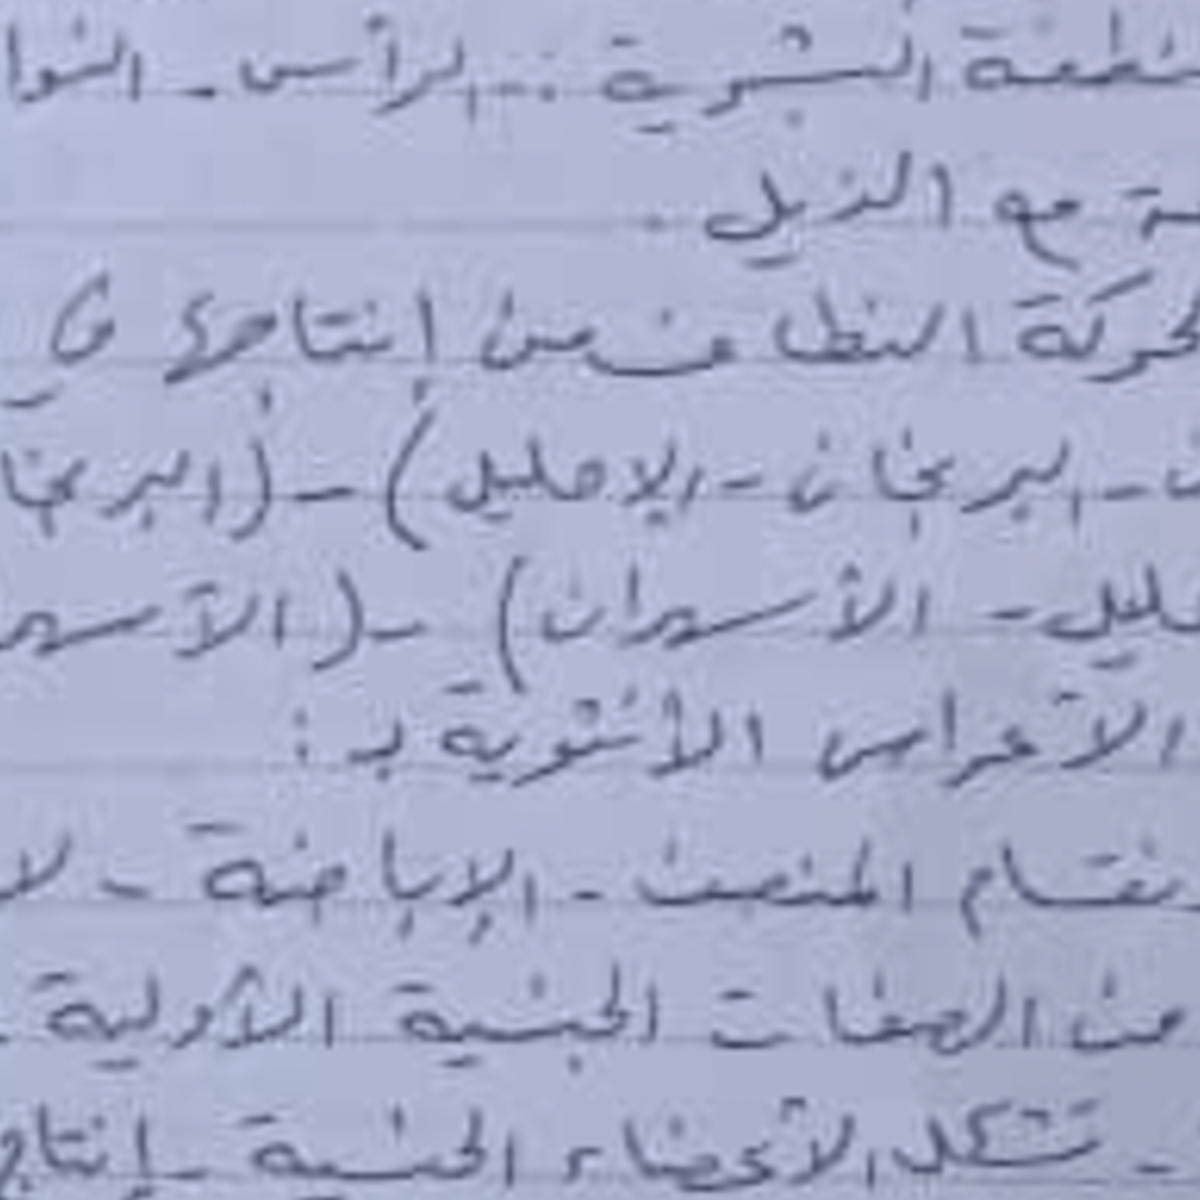 نطفة البشرية :- الرأس - النوا
ـة مع الذيل .
لحركة النطاف من إنتاجها في
ـن - البربخان - الإحليل) - (البربخا
ـحليل - الأسهران) - (الأسهر
الأعراس الأنثوية بـ :
ـنقسام المنصف - الإباضة - لا
من الصفات الجنسية الأولية -
- تشكل الأعضاء الجنسية - إنتاج